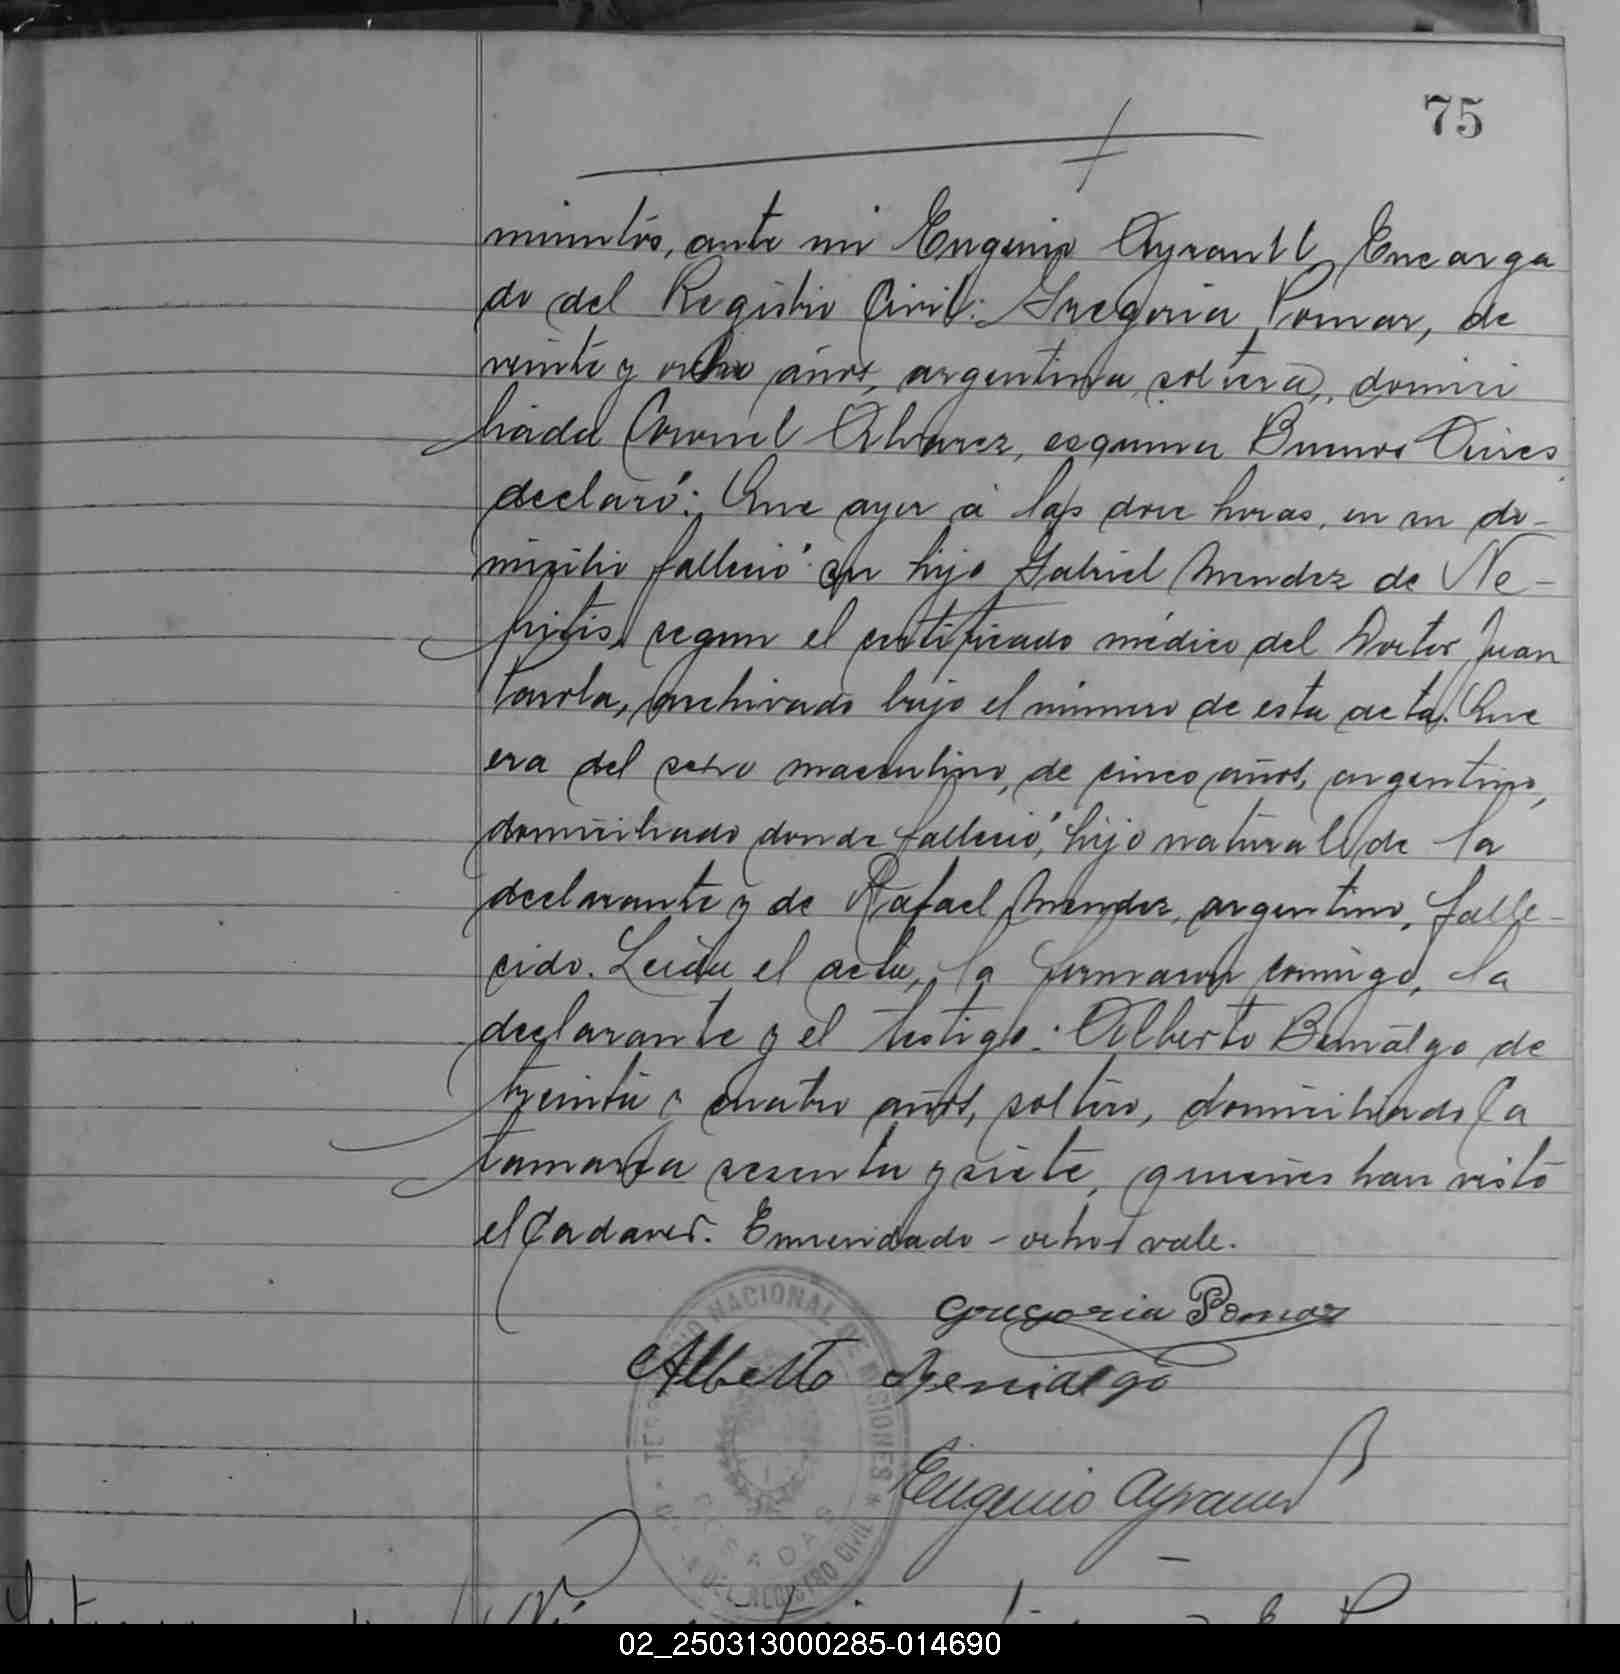 75
minutos, ante mi Eugenio Ayrault Encarga
do del Registro Civil: Gregoria Pomar, de
veinte y ocho años, argentina, soltera, domici
liada Coronel Alvarez, esquina Buenos Aires
declaró: Que ayer á las doce horas, en su do-
micilio falleció su hijo Gabriel Mendez de Ne-
fritis, segun el certificado médico del Doctor Juan
archivado bajo el número de esta acta. Que
era del sexo masculino, de cinco años, argentino,
domiciliado donde falleció, hijo natural de la
declarante y de Rafael Mendez, argentino, falle-
cido. Leida el acta, la firmaron conmigo, la
declarante y el testigo: Alberto de
treinta y cuatro años, soltero, domiciliado Ca
tamarca sesenta y siete, quienes han visto
el cadaver. Enmendado - ocho - vale.
Gregoria Pomar
Alberto
Eugenio Ayrault
TERRITORIO NACIONAL DE MISIONES *
DEL REGISTRO CIVIL
POSADAS
02_250313000285-014690